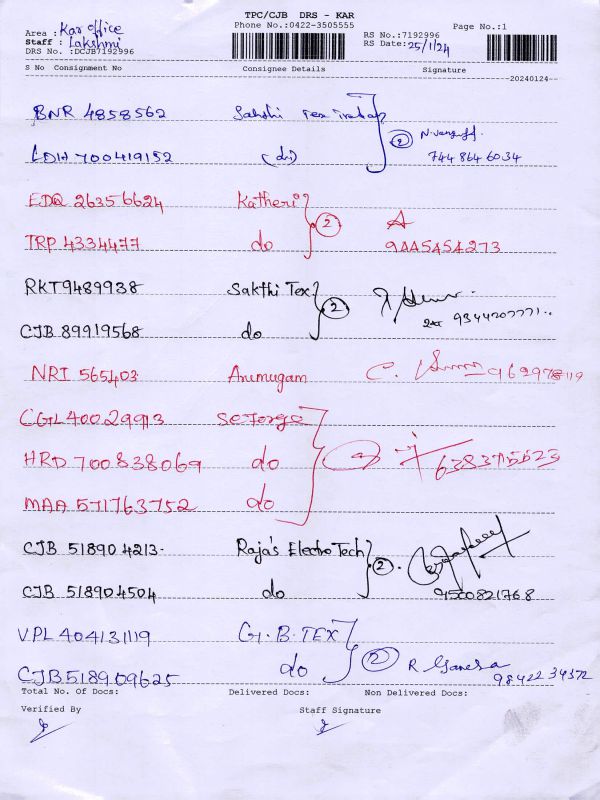 TPC/CJB DRS - KAR
Phone No.:0422-3505555
Page No.:1
Area : Kar office
RS No.:7192996
Staff : Lakshmi
RS Date:25/1/24
DRS No.:DCJB7192996
S No Consignment No Consignee Details Signature
20240124
BNR 4858562 Sakshi Tex
2
LDH 700419152 (do) 744 864 6034
EDQ 26356624 Katheri 2
TRP 4334477 do 9445454273
RKT9489938 Sakthi Tex 2
CJB 89919568 do 9344207771
NRI 565403 Arumugam C. 
CGL400 29913
HRD 700838069 do
MAA 571763752 do
CJB 518904213. Raja's Electro Tech 2.
CJB 518904504 do 9500821768
VPL 404131119 G.B.TEX 2 R Ganesa
CJB518909625 do 98422 34572
Total No. Of Docs: Delivered Docs: Non Delivered Docs:
Verified By Staff Signature